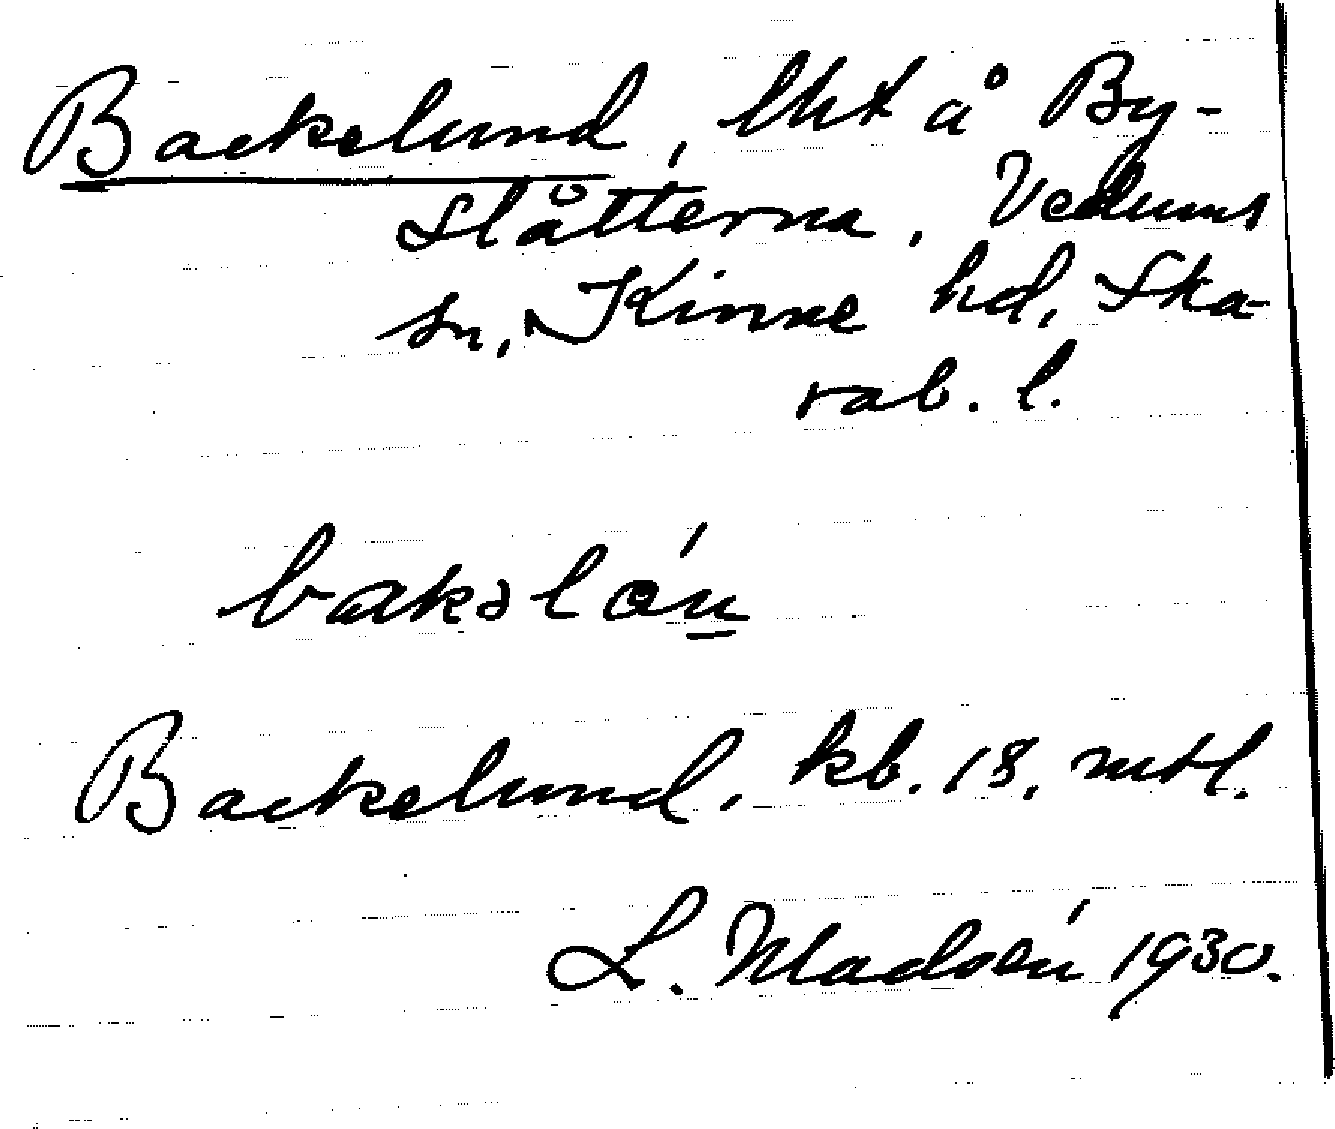 Backelund, lht å By-
slåtterna, Vedums
sn, Kinne hd, Ska-
rab. l.
bakəlɷ́n
Backelund, kb. 18, mtl.
L. Madsén 1930.